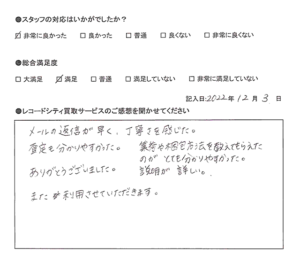 ●スタッフの対応はいかがでしたか？
☑非常に良かった □良かった □普通 □良くない □非常に良くない
●総合満足度
□大満足 ☑満足 □普通 □満足していない □非常に満足していない
記入日:2022年 12月 3日
●レコードシティ買取サービスのご感想を聞かせてください
メールの返信が早く、丁寧さを感じた。
査定も分かりやすかった。 集荷や梱包方法を教えてもらえた
のがとても分かりやすかった。
ありがとうございました。 説明が詳しい。
また利用させていただきます。